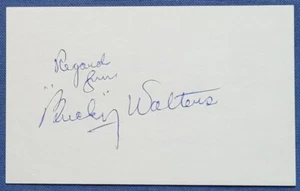 Regard
from
"Bucky" Walters